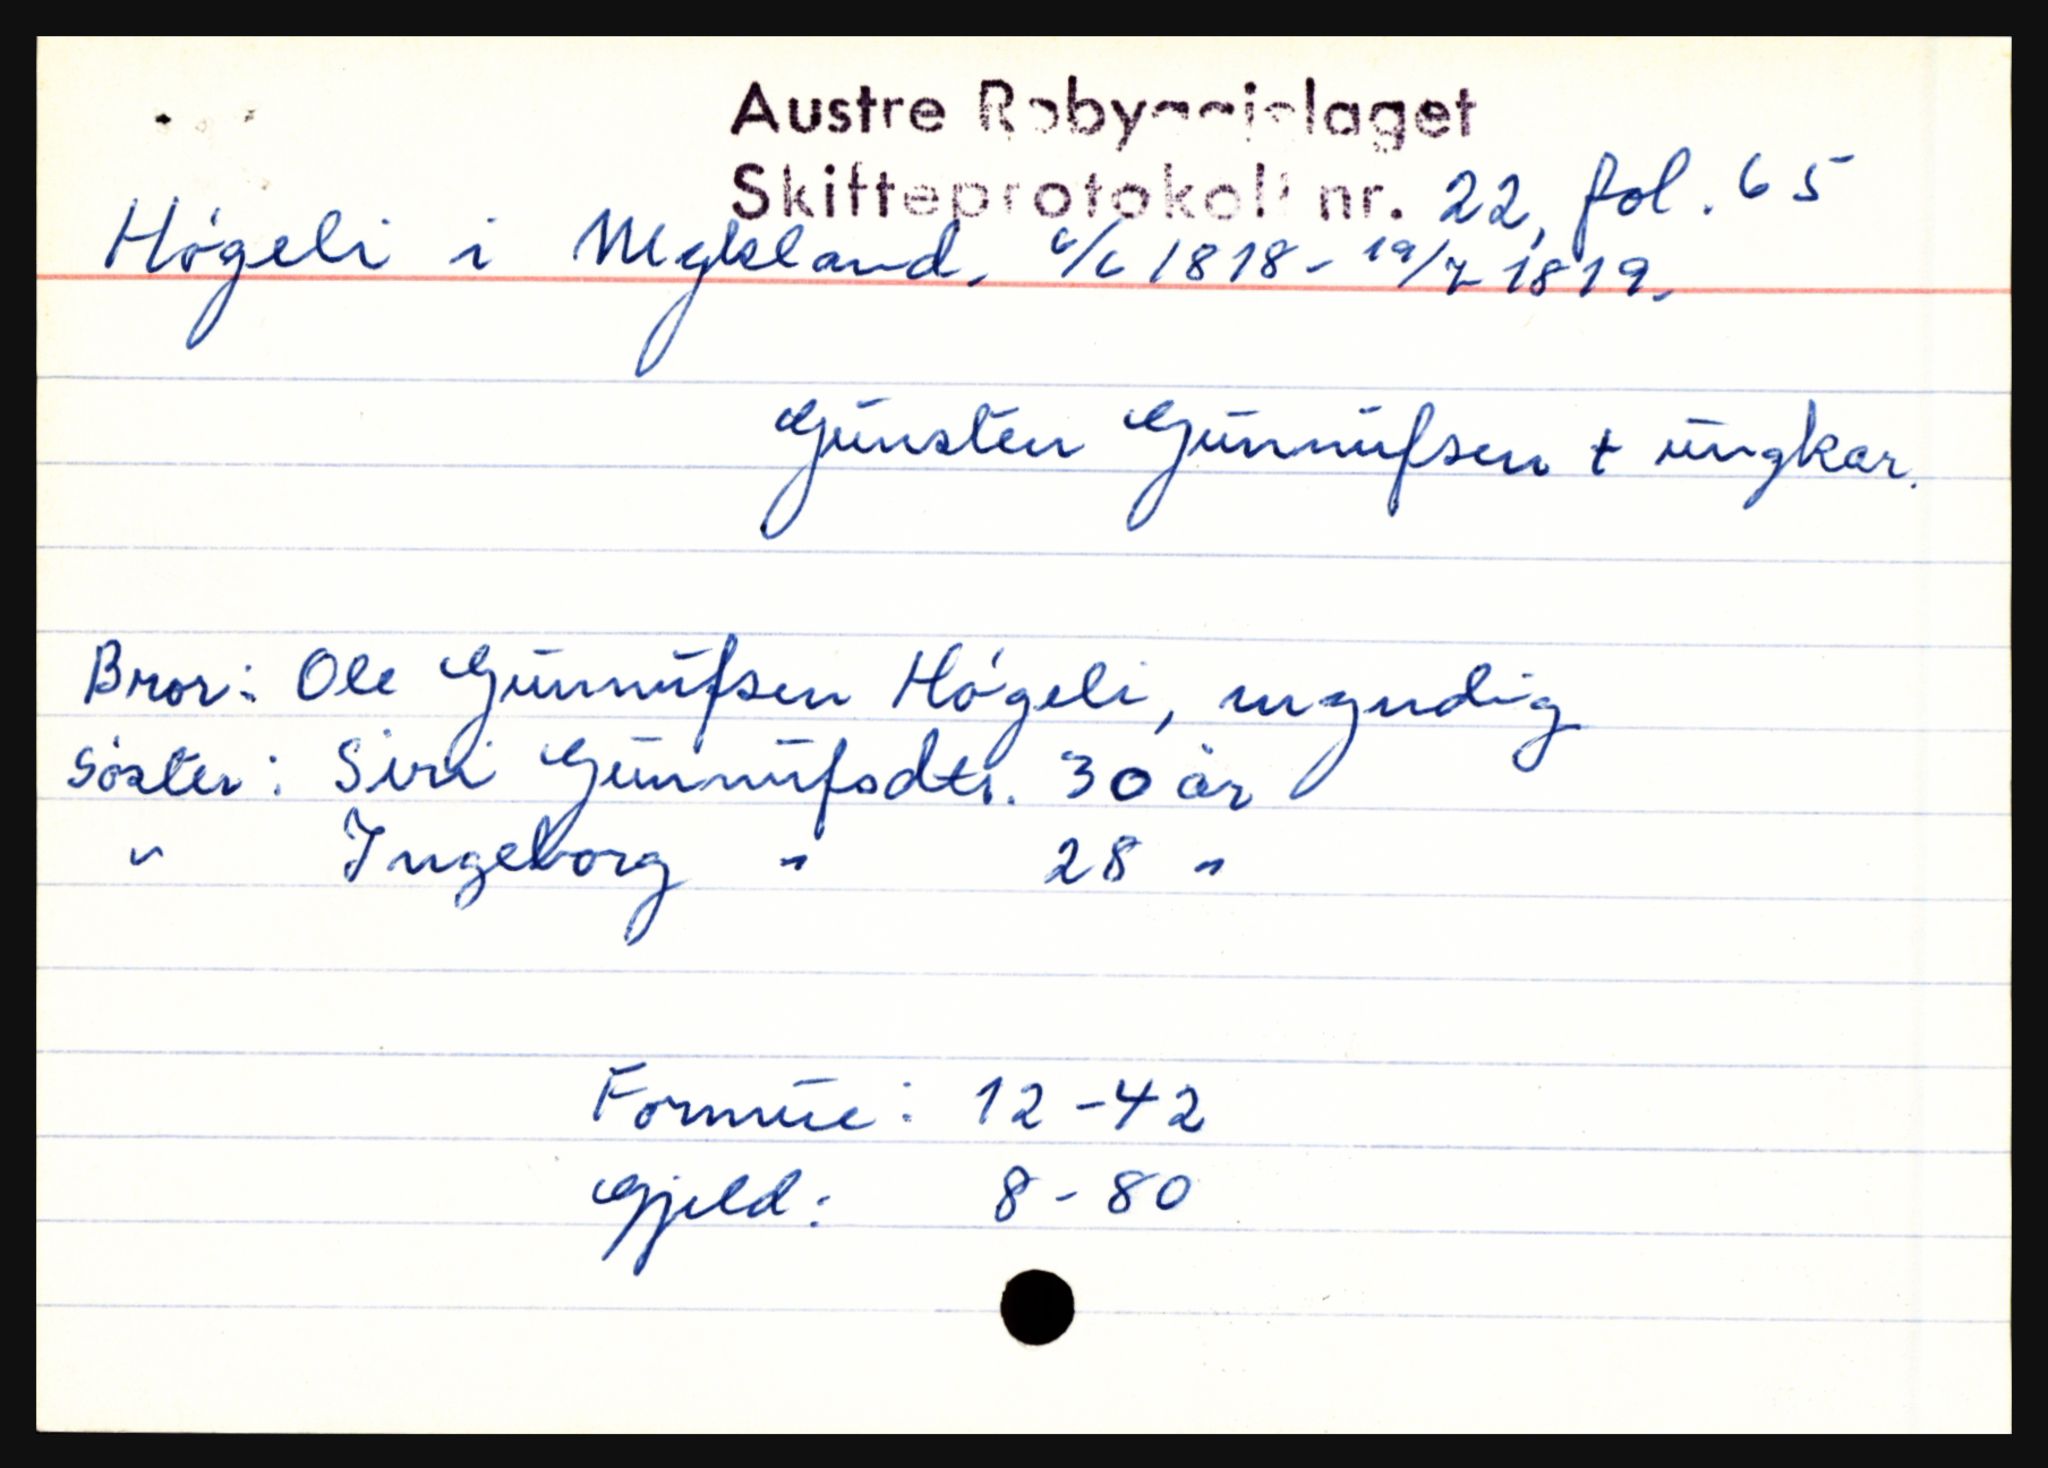 Austre Robyggjelaget
Skifteprotokoll nr. 22, fol. 65
Högeli i Mykland, 6/6 1818 - 19/7 1819.
Gunsten Gunnufsen + ungkar.
Bror: Ole Gunnufsen Högeli, myndig
Söster: Siri Gunnufsdtr. 30 år
" Ingeborg " 28 "
Formue: 12-42
Gjeld: 8-80